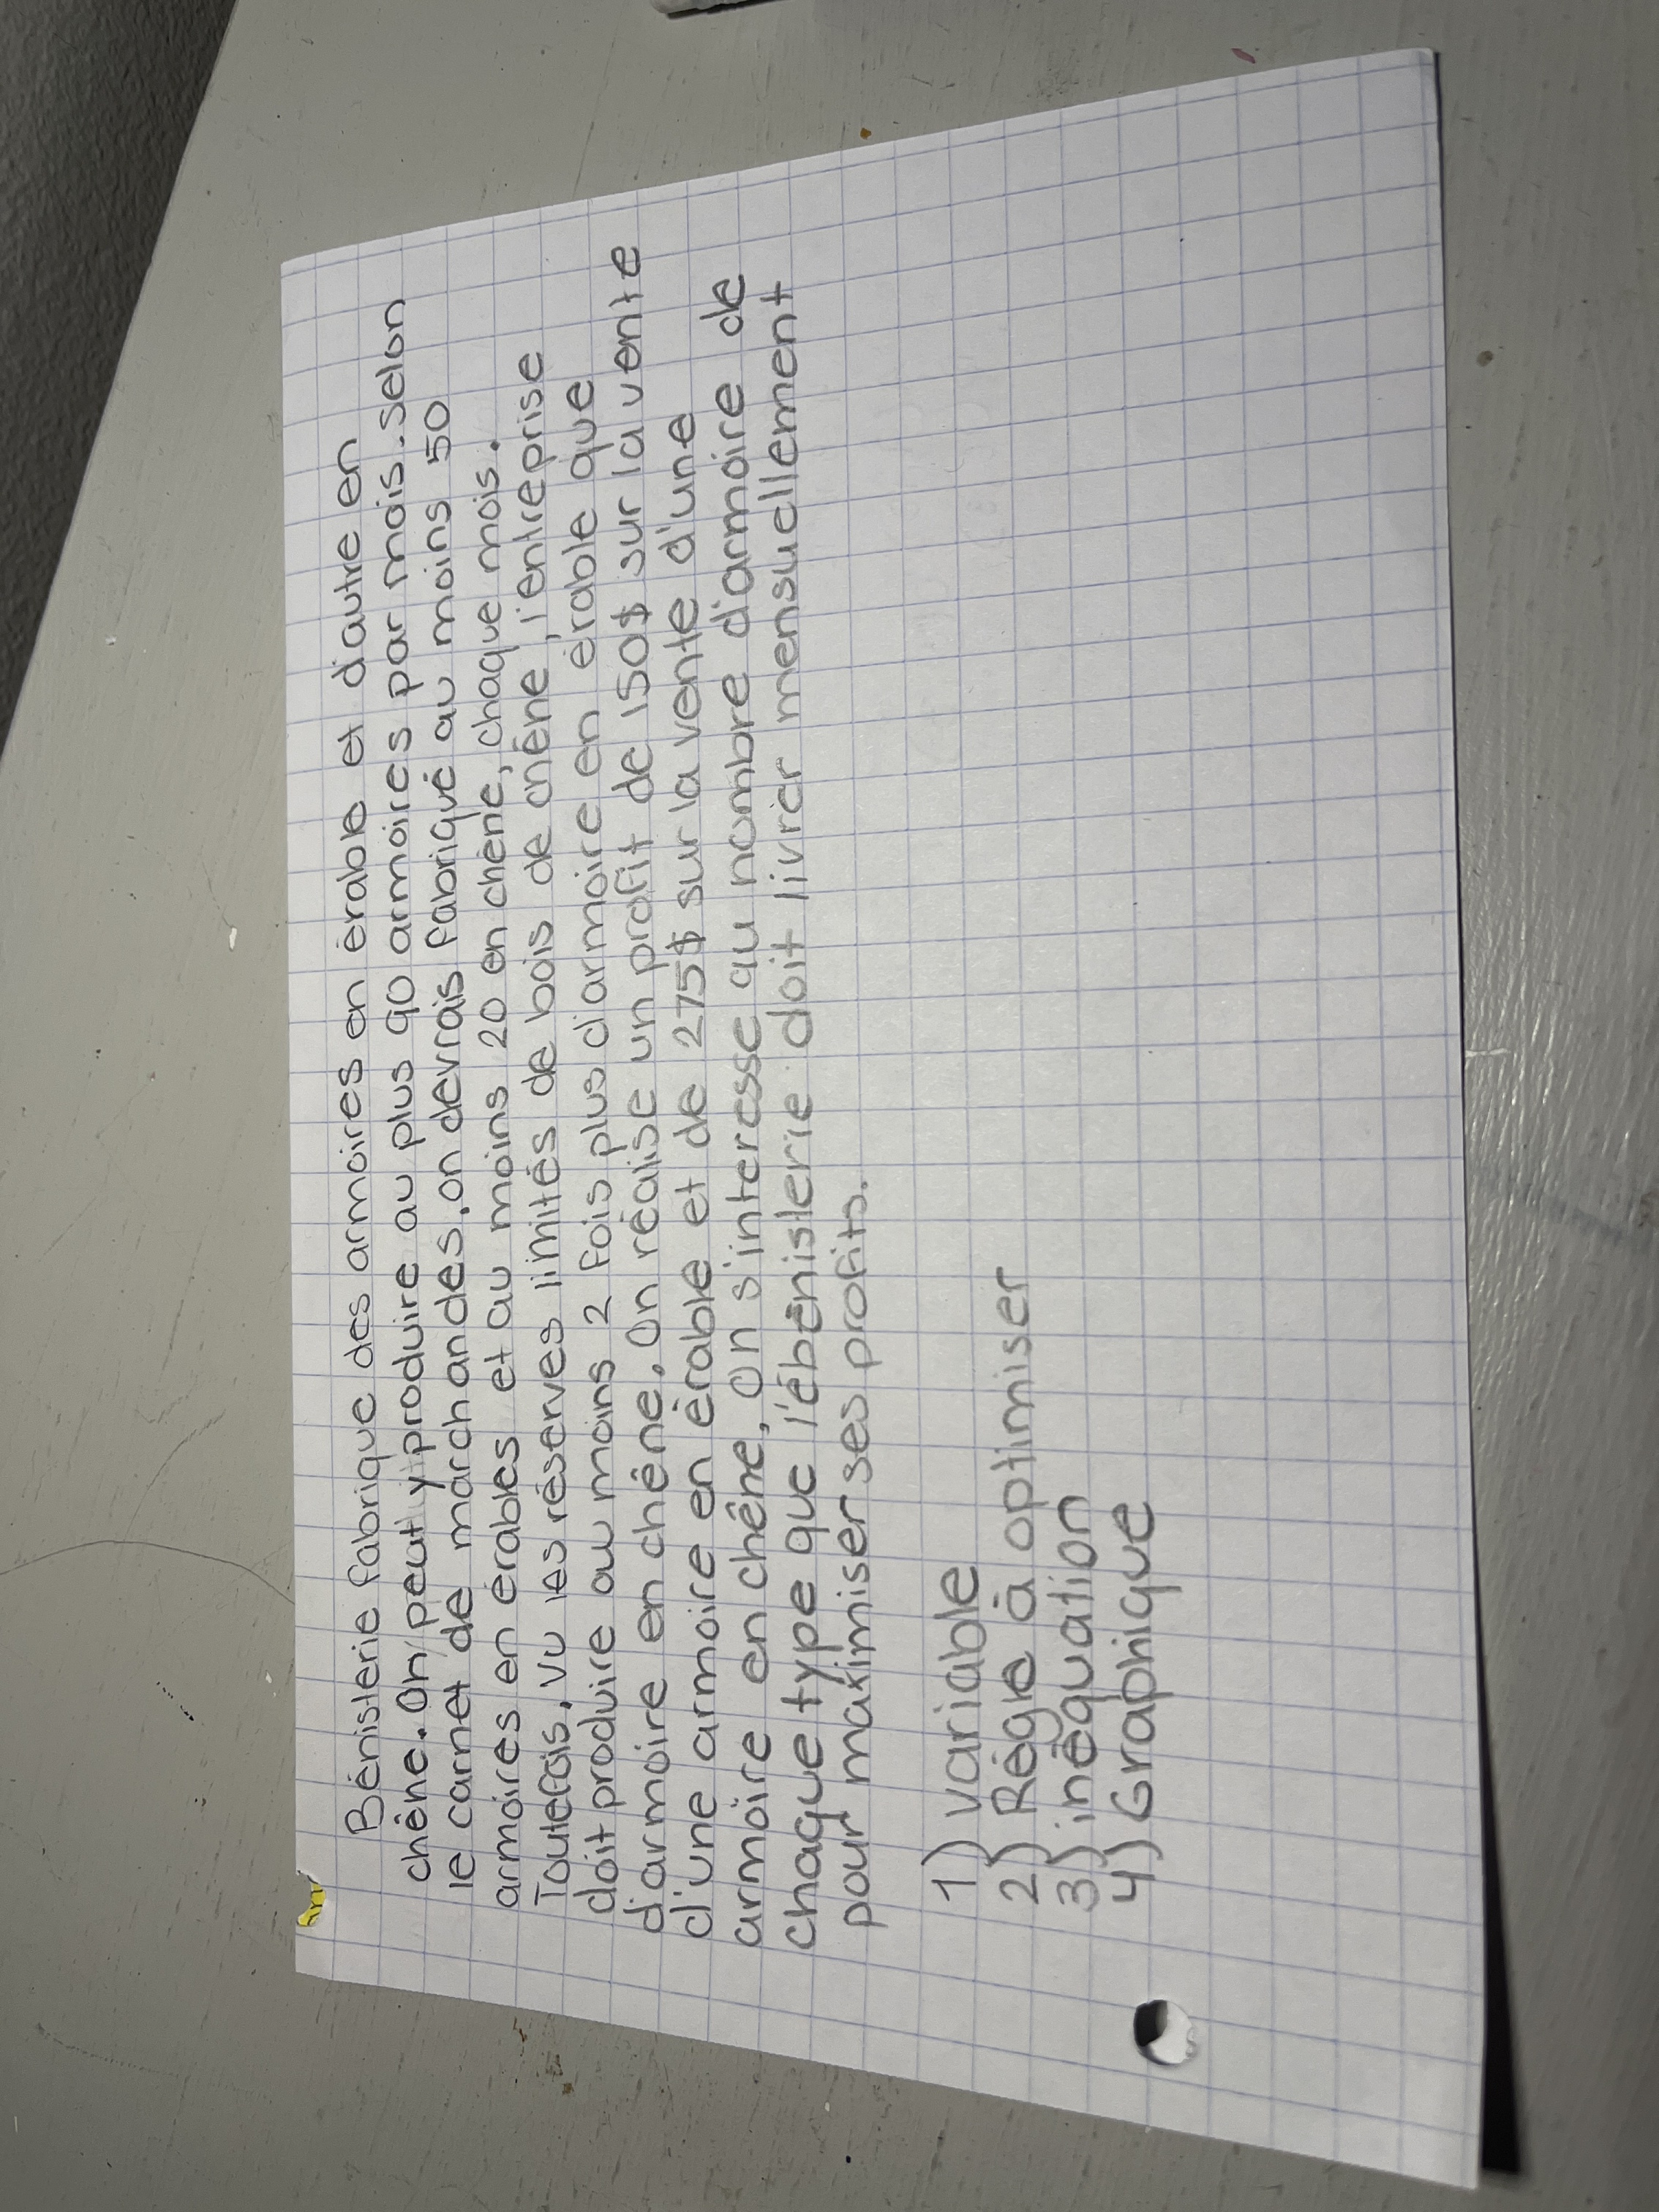 Bénislerie fabrique des armoires en érable et d'autre en
chêne. On peut y produire au plus 90 armoires par mois. selon
le carnet de marchandes, on devrais fabriqué au moins 50
armoires en érables et au moins 20 en chêne, chaque mois.
Toutefois, vu les réserves limités de bois de chêne, l'entreprise
doit produire au moins 2 fois plus d'armoire en érable que
d'armoire en chêne. On réalise un profit de 150$ sur la vente
d'une armoire en érable et de 275$ sur la vente d'une
armoire en chêne, on s'interesse au nombre d'armoire de
chaque type que l'ébénislerie doit livrer mensuellement
pour maximiser ses profits.
1) variable
2) Règle à optimiser
3) inéquation
4) Graphique